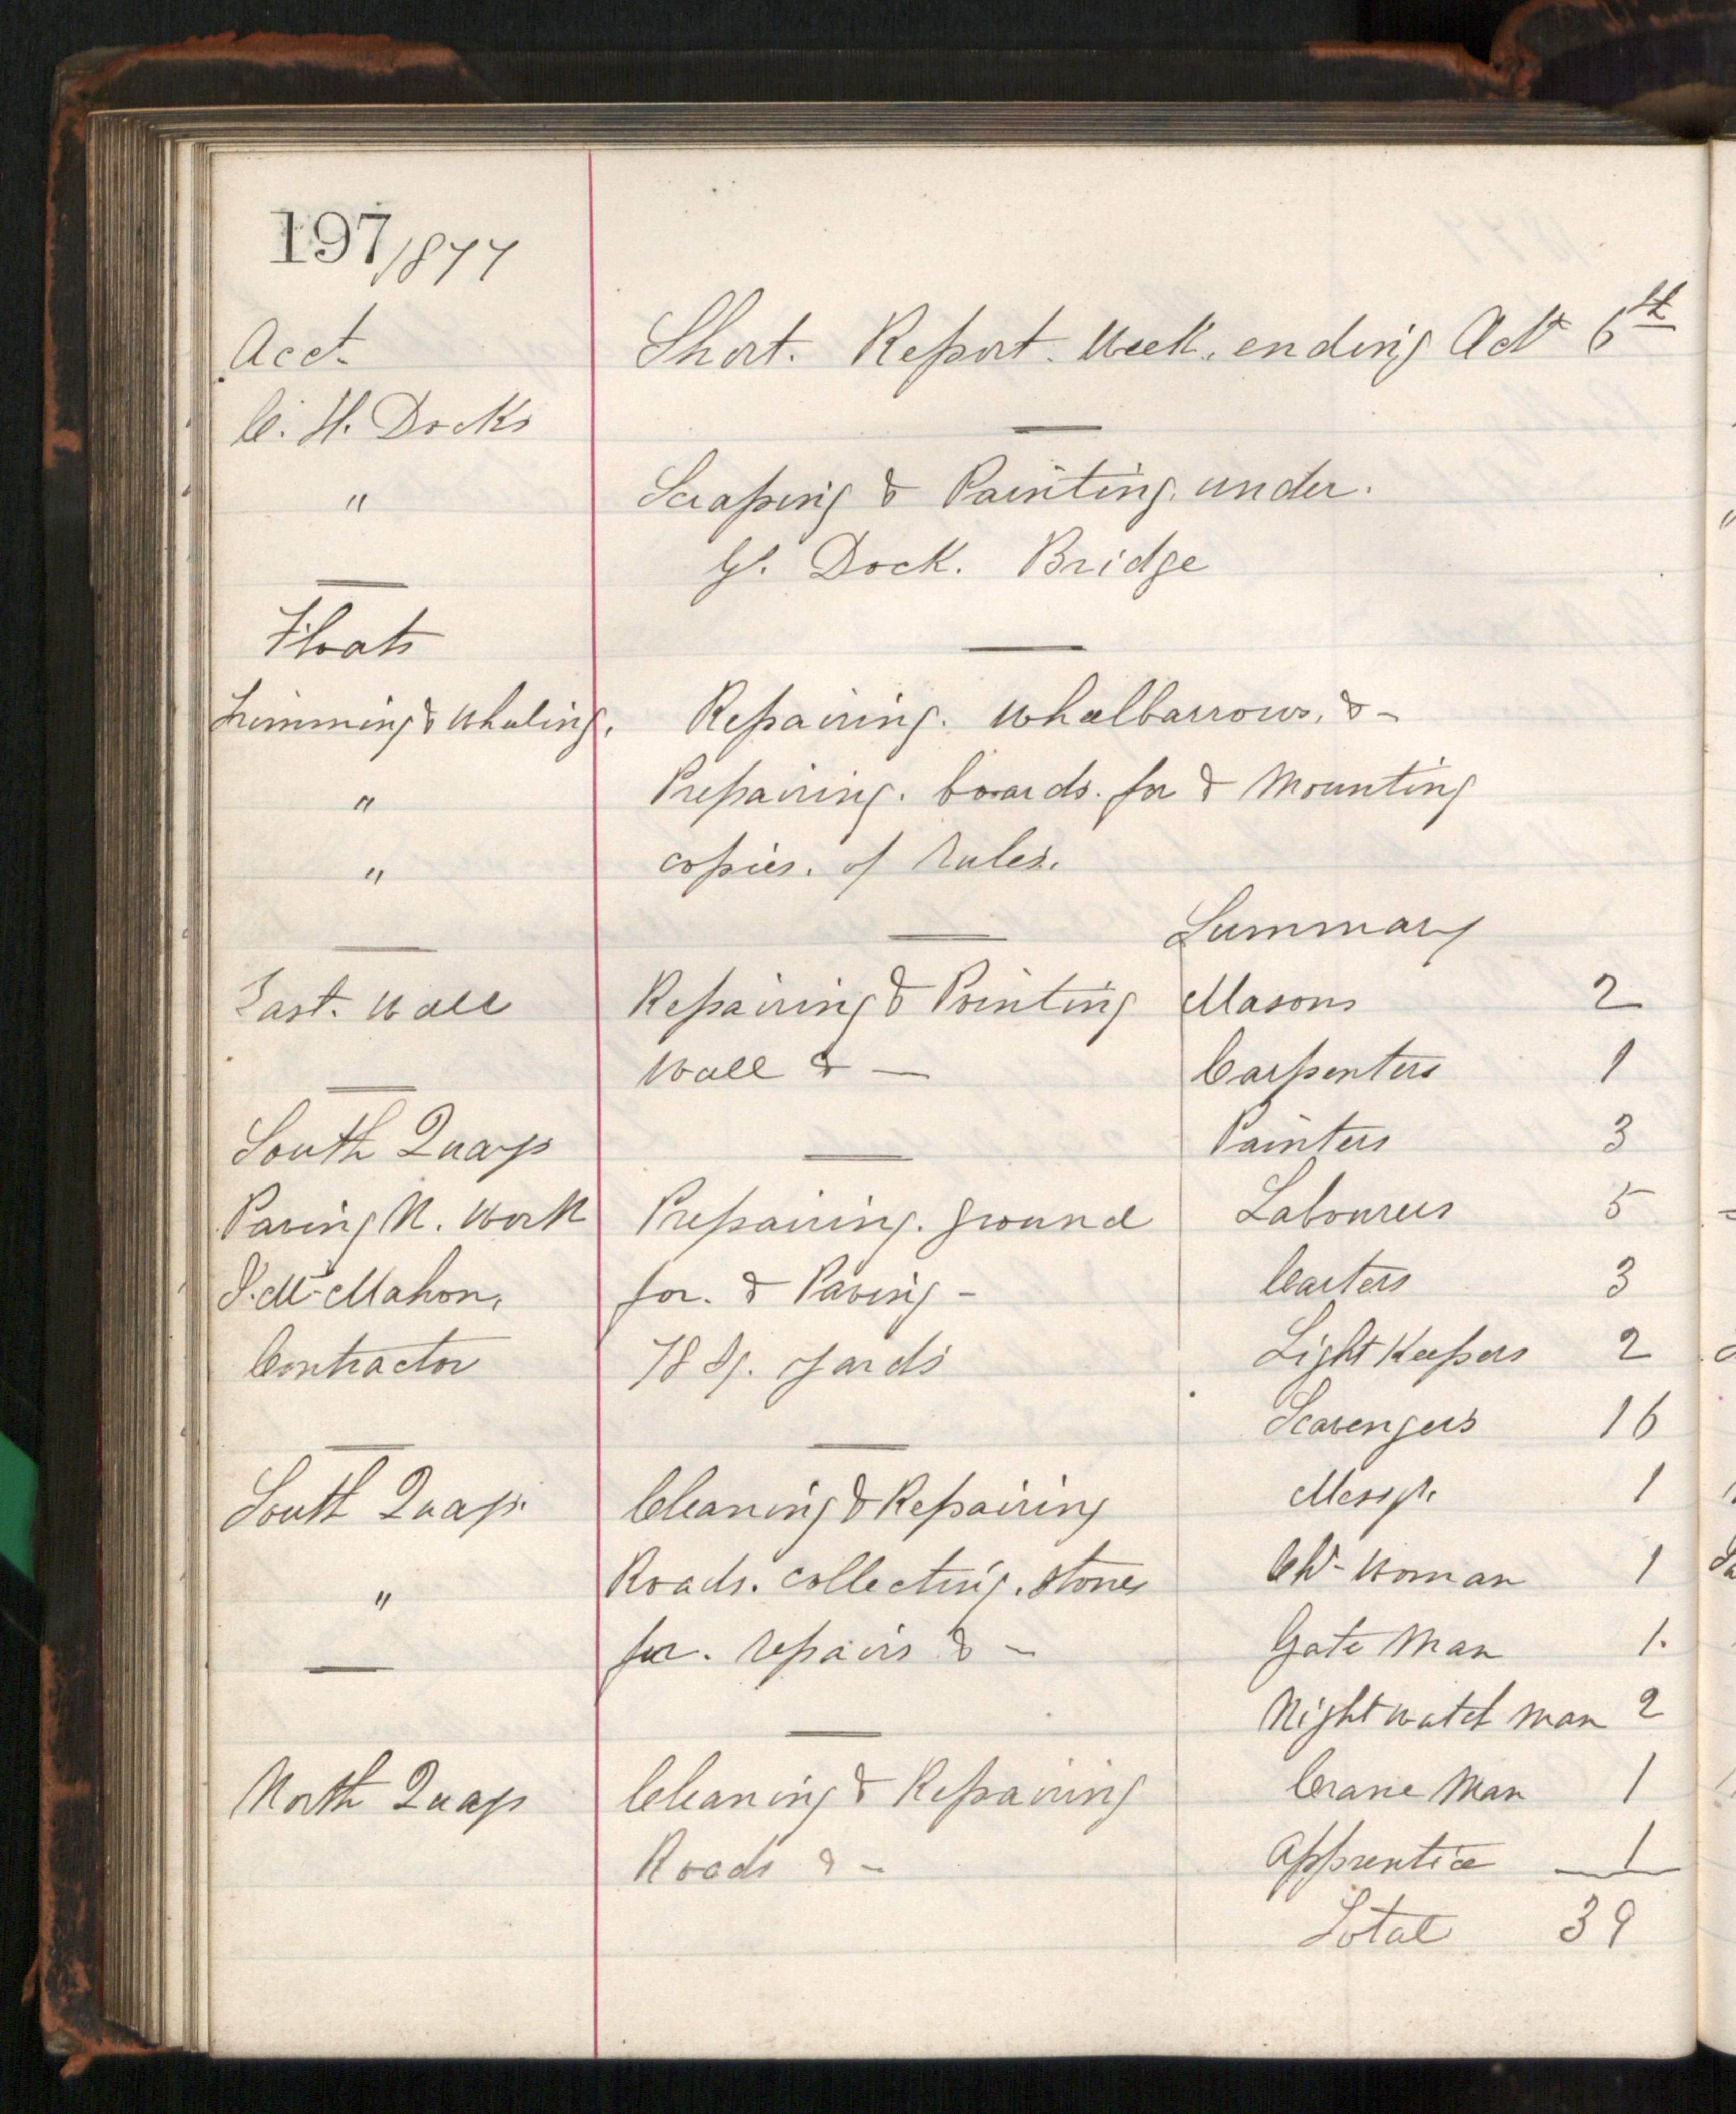 197/1877
Acct. Short. Report. Week. ending Oct 6th
C. H. Docks
" Scraping & Painting. under.
G. Dock. Bridge
Floats
Trimming & Wheeling. Repairing. Wheelbarrows. & -
" Preparing. boards. for & Mounting
" copies. of Rules.
Summary
East. Wall Repairing & Pointing Masons 2
Wall & — Carpenters 1
South Quays Painters 3
Paving N. Work Preparing. ground Labourers 5
McMahon, for. & Paving - Carters 3
Contractor 78 Sq. yards Light Keepers 2
Scavengers 16
South Quays. Cleaning & Repairing Messgr. 1
" Roads. collecting. stones Woman 1
for. repairs & - Gate Man 1.
Night watch man 2
North Quays Cleaning & Repairing Crane Man 1
Roads & - Apprentice 1
Total 39